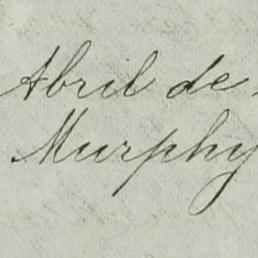 Abril de
Murphy